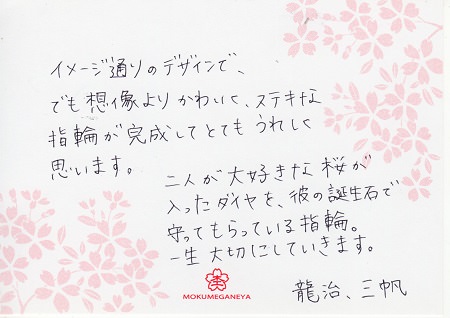 イメージ通りのデザインで、
でも想像よりかわいく、ステキな
指輪が完成してとてもうれしく
思います。
二人が大好きな桜が
入ったダイヤを、彼の誕生石で
守ってもらっている指輪。
一生大切にしていきます。
MOKUMEGANEYA
龍治、三帆